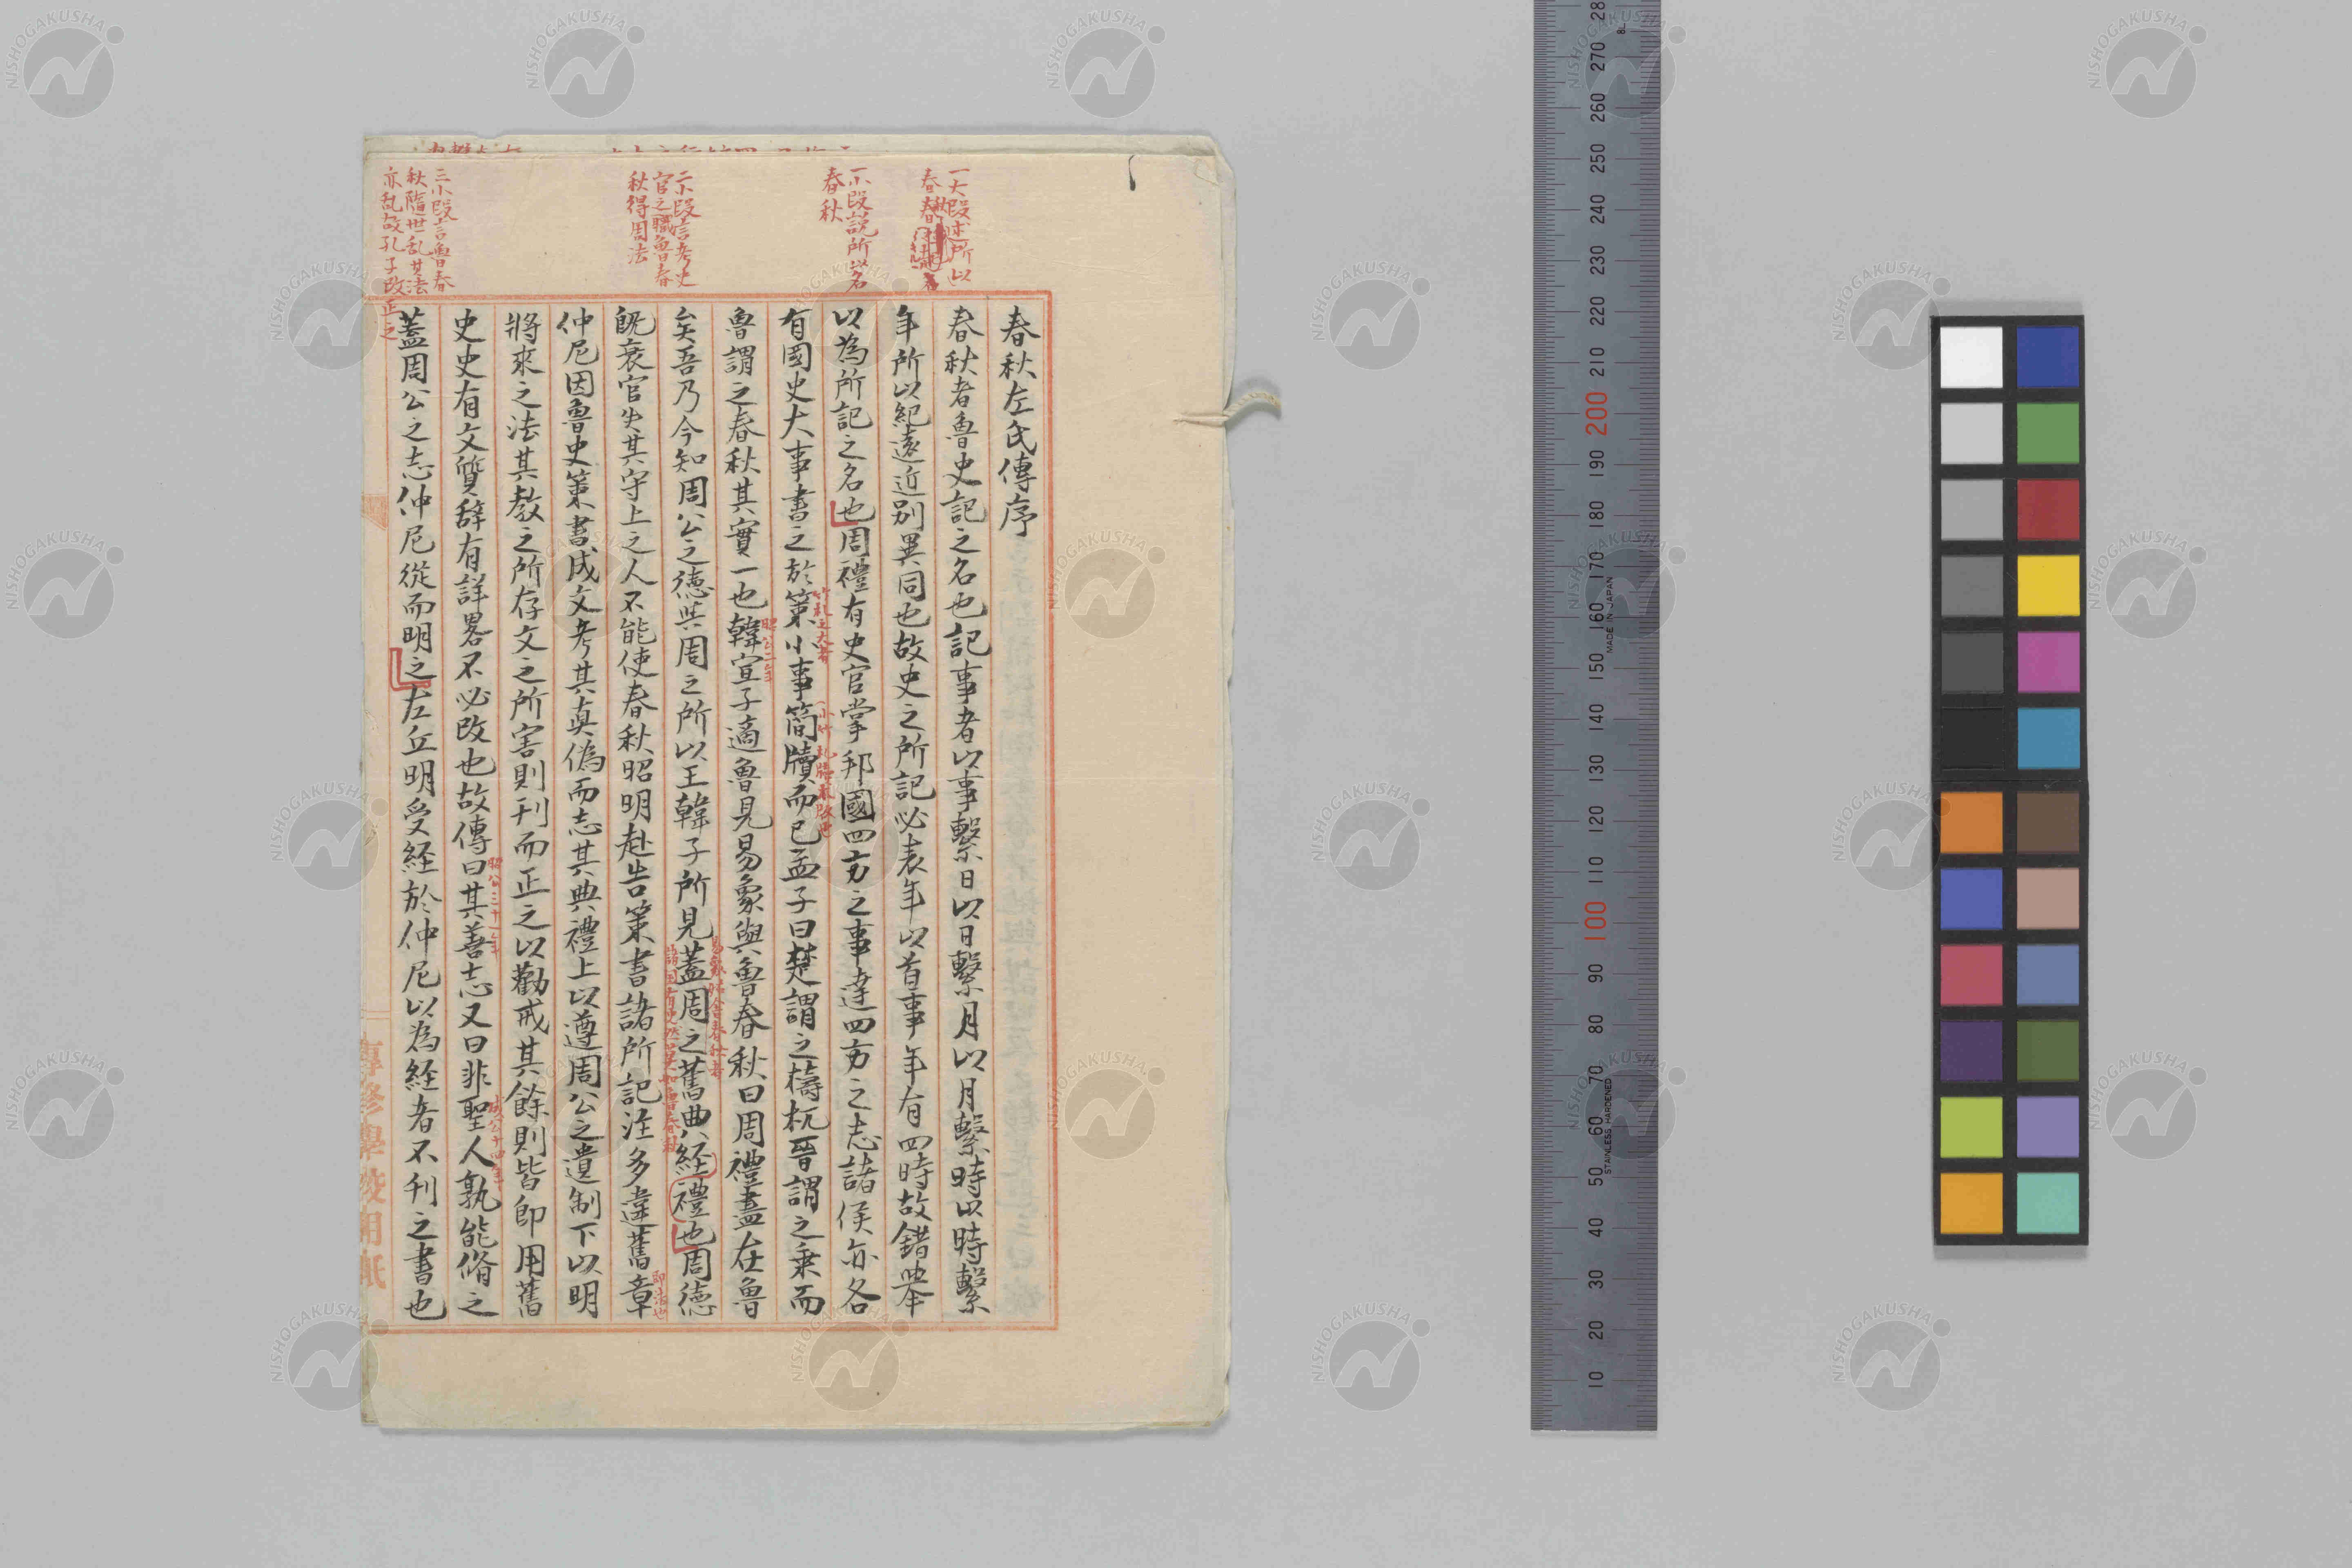 一大段述所以
春秋
一小段説所以名
春秋
二小段言考史
官之職魯春
秋得周法
三小段言魯春
秋隨世乱其法
亦乱故孔子改正之
春秋左氏傳序
春秋者魯史記之名也記事者以事繫日以日繫月以月繫時以時繫
年所以紀遠近別異同也故史之所記必表年以首事年有四時故錯舉
以為所記之名也周禮有史官掌邦國四方之事達四方之志諸侯亦各
有國史大事書之於策小事簡牘而已孟子曰楚謂之檮杌晉謂之乗而
竹札之大者
魯謂之春秋其實一也韓宣子適魯見易象與魯春秋曰周禮盡在魯
昭公二年
矣吾乃今知周公之徳與周之所以王韓子所見蓋周之舊典経禮也周徳
既衰官失其守上之人不能使春秋昭明赴告策書諸所記注多違舊章
即法也
仲尼因魯史策書成文考其真偽而志其典禮上以遵周公之遺制下以明
將來之法其教之所存文之所害則刊而正之以勸戒其餘則皆即用舊
史史有文質辞有詳畧不必改也故傳曰其善志又曰非聖人孰能脩之
昭公三十一年
成公十四年
蓋周公之志仲尼從而明之左丘明受経於仲尼以為経者不刊之書也
專修學校用紙
NISHOGAKUSHA
MADE IN JAPAN
STAINLESS HARDENED
10 20 30 40 50 60 70 80 90 100 110 120 130 140 150 160 170 180 190 200 210 220 230 240 250 260 270 28